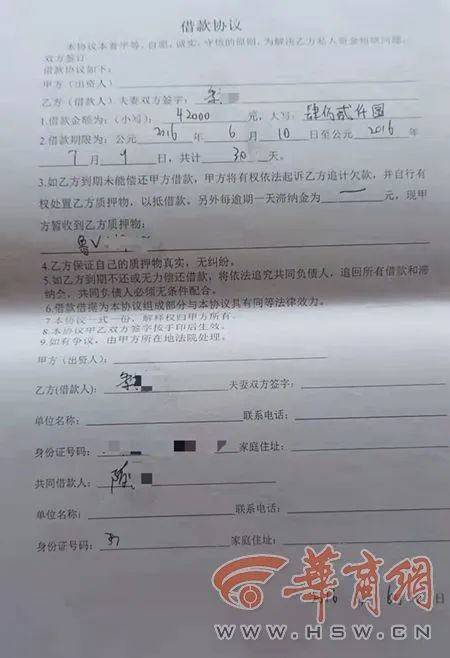 借款协议
本协议本着平等、自愿、诚实、守信的原则，为解决乙方私人资金短缺问题，
双方签订
借款协议如下：
甲方（出资人）
乙方（借款人）夫妻双方签字：
1.借款金额为：（小写）：42000元，大写：肆万贰仟圆
2.借款期限为：公元2016年6月10日至公元2016年
7月9日，共计30天。
3.如乙方到期未能偿还甲方借款，甲方将有权依法起诉乙方追计欠款，并自行有
权处置乙方质押物，以抵借款。另外每逾期一天滞纳金为 元，现甲
方暂收到乙方质押物：
鲁V
4.乙方保证自己的质押物真实，无纠纷。
5.如乙方到期不还或无力偿还借款，将依法追究共同负债人，追回所有借款和滞
纳金，共同负债人必须无条件配合。
6.借款借据为本协议组成部分与本协议具有同等法律效力。
7.本协议一式一份，解释权归甲方所有。
8.本协议甲乙双方签字按手印后生效。
9.如有争议，由甲方所在地法院处理。
甲方（出资人）：
乙方(借款人)： 夫妻双方签字：
单位名称： 联系电话：
身份证号码： 家庭住址：
共同借款人：
单位名称： 联系电话：
身份证号码：37 家庭住址：
日
华商网
WWW.HSW.CN